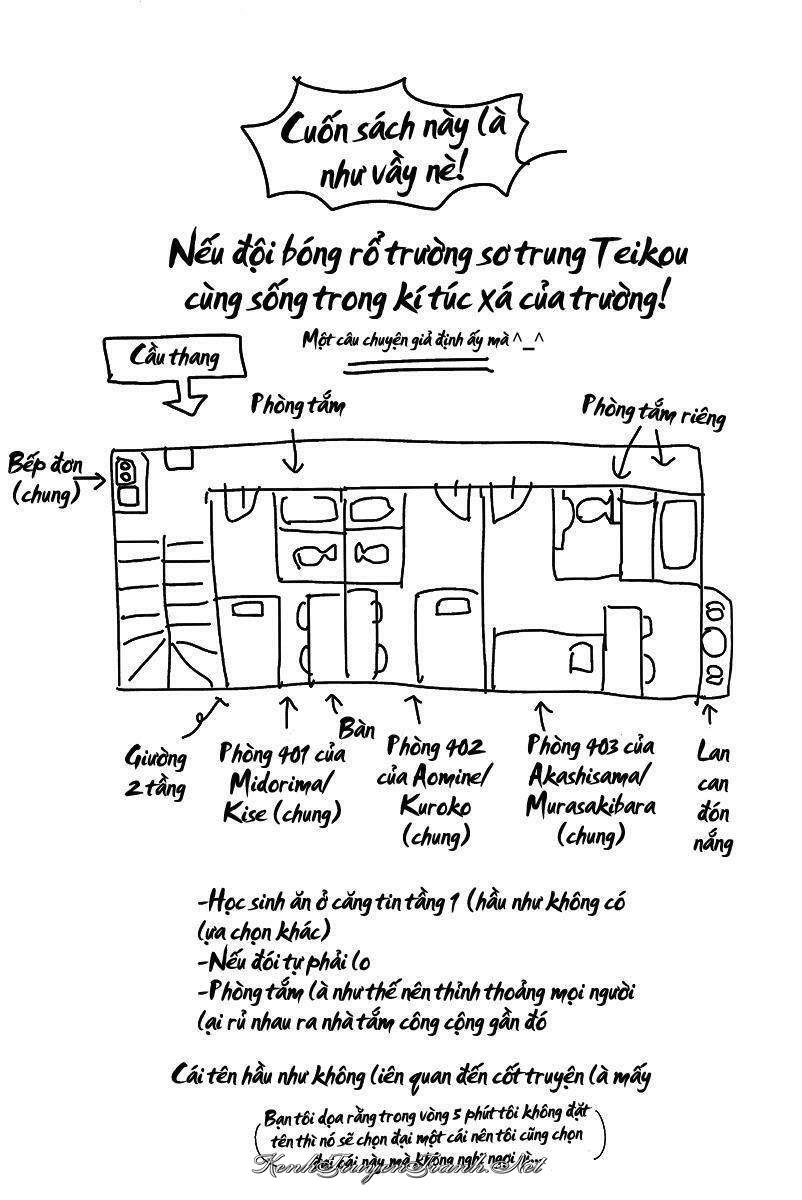 Cuốn sách này là
như vầy nè!
Nếu đội bóng rổ trường sơ trung Teikou
cùng sống trong kí túc xá của trường!
Một câu chuyện giả định ấy mà ^_^
Cầu thang
Phòng tắm
Phòng tắm riêng
Bếp đơn
(chung)
Giường
2 tầng
Phòng 401 của
Midorima/
Kise (chung)
Bàn
Phòng 402
của Aomine/
Kuroko
(chung)
Phòng 403 của
Akashisama/
Murasakibara
(chung)
Lan
can
đón
nắng
-Học sinh ăn ở căng tin tầng 1 (hầu như không có
lựa chọn khác)
-Nếu đói tự phải lo
-Phòng tắm là như thế nên thỉnh thoảng mọi người
lại rủ nhau ra nhà tắm công cộng gần đó
Cái tên hầu như không liên quan đến cốt truyện là mấy
(Bạn tôi dọa rằng trong vòng 5 phút tôi không đặt
tên thì nó sẽ chọn đại một cái nên tôi cũng chọn
đại cái này mà không nghĩ ngợi gì...)
KenhTruyenTranh.Net